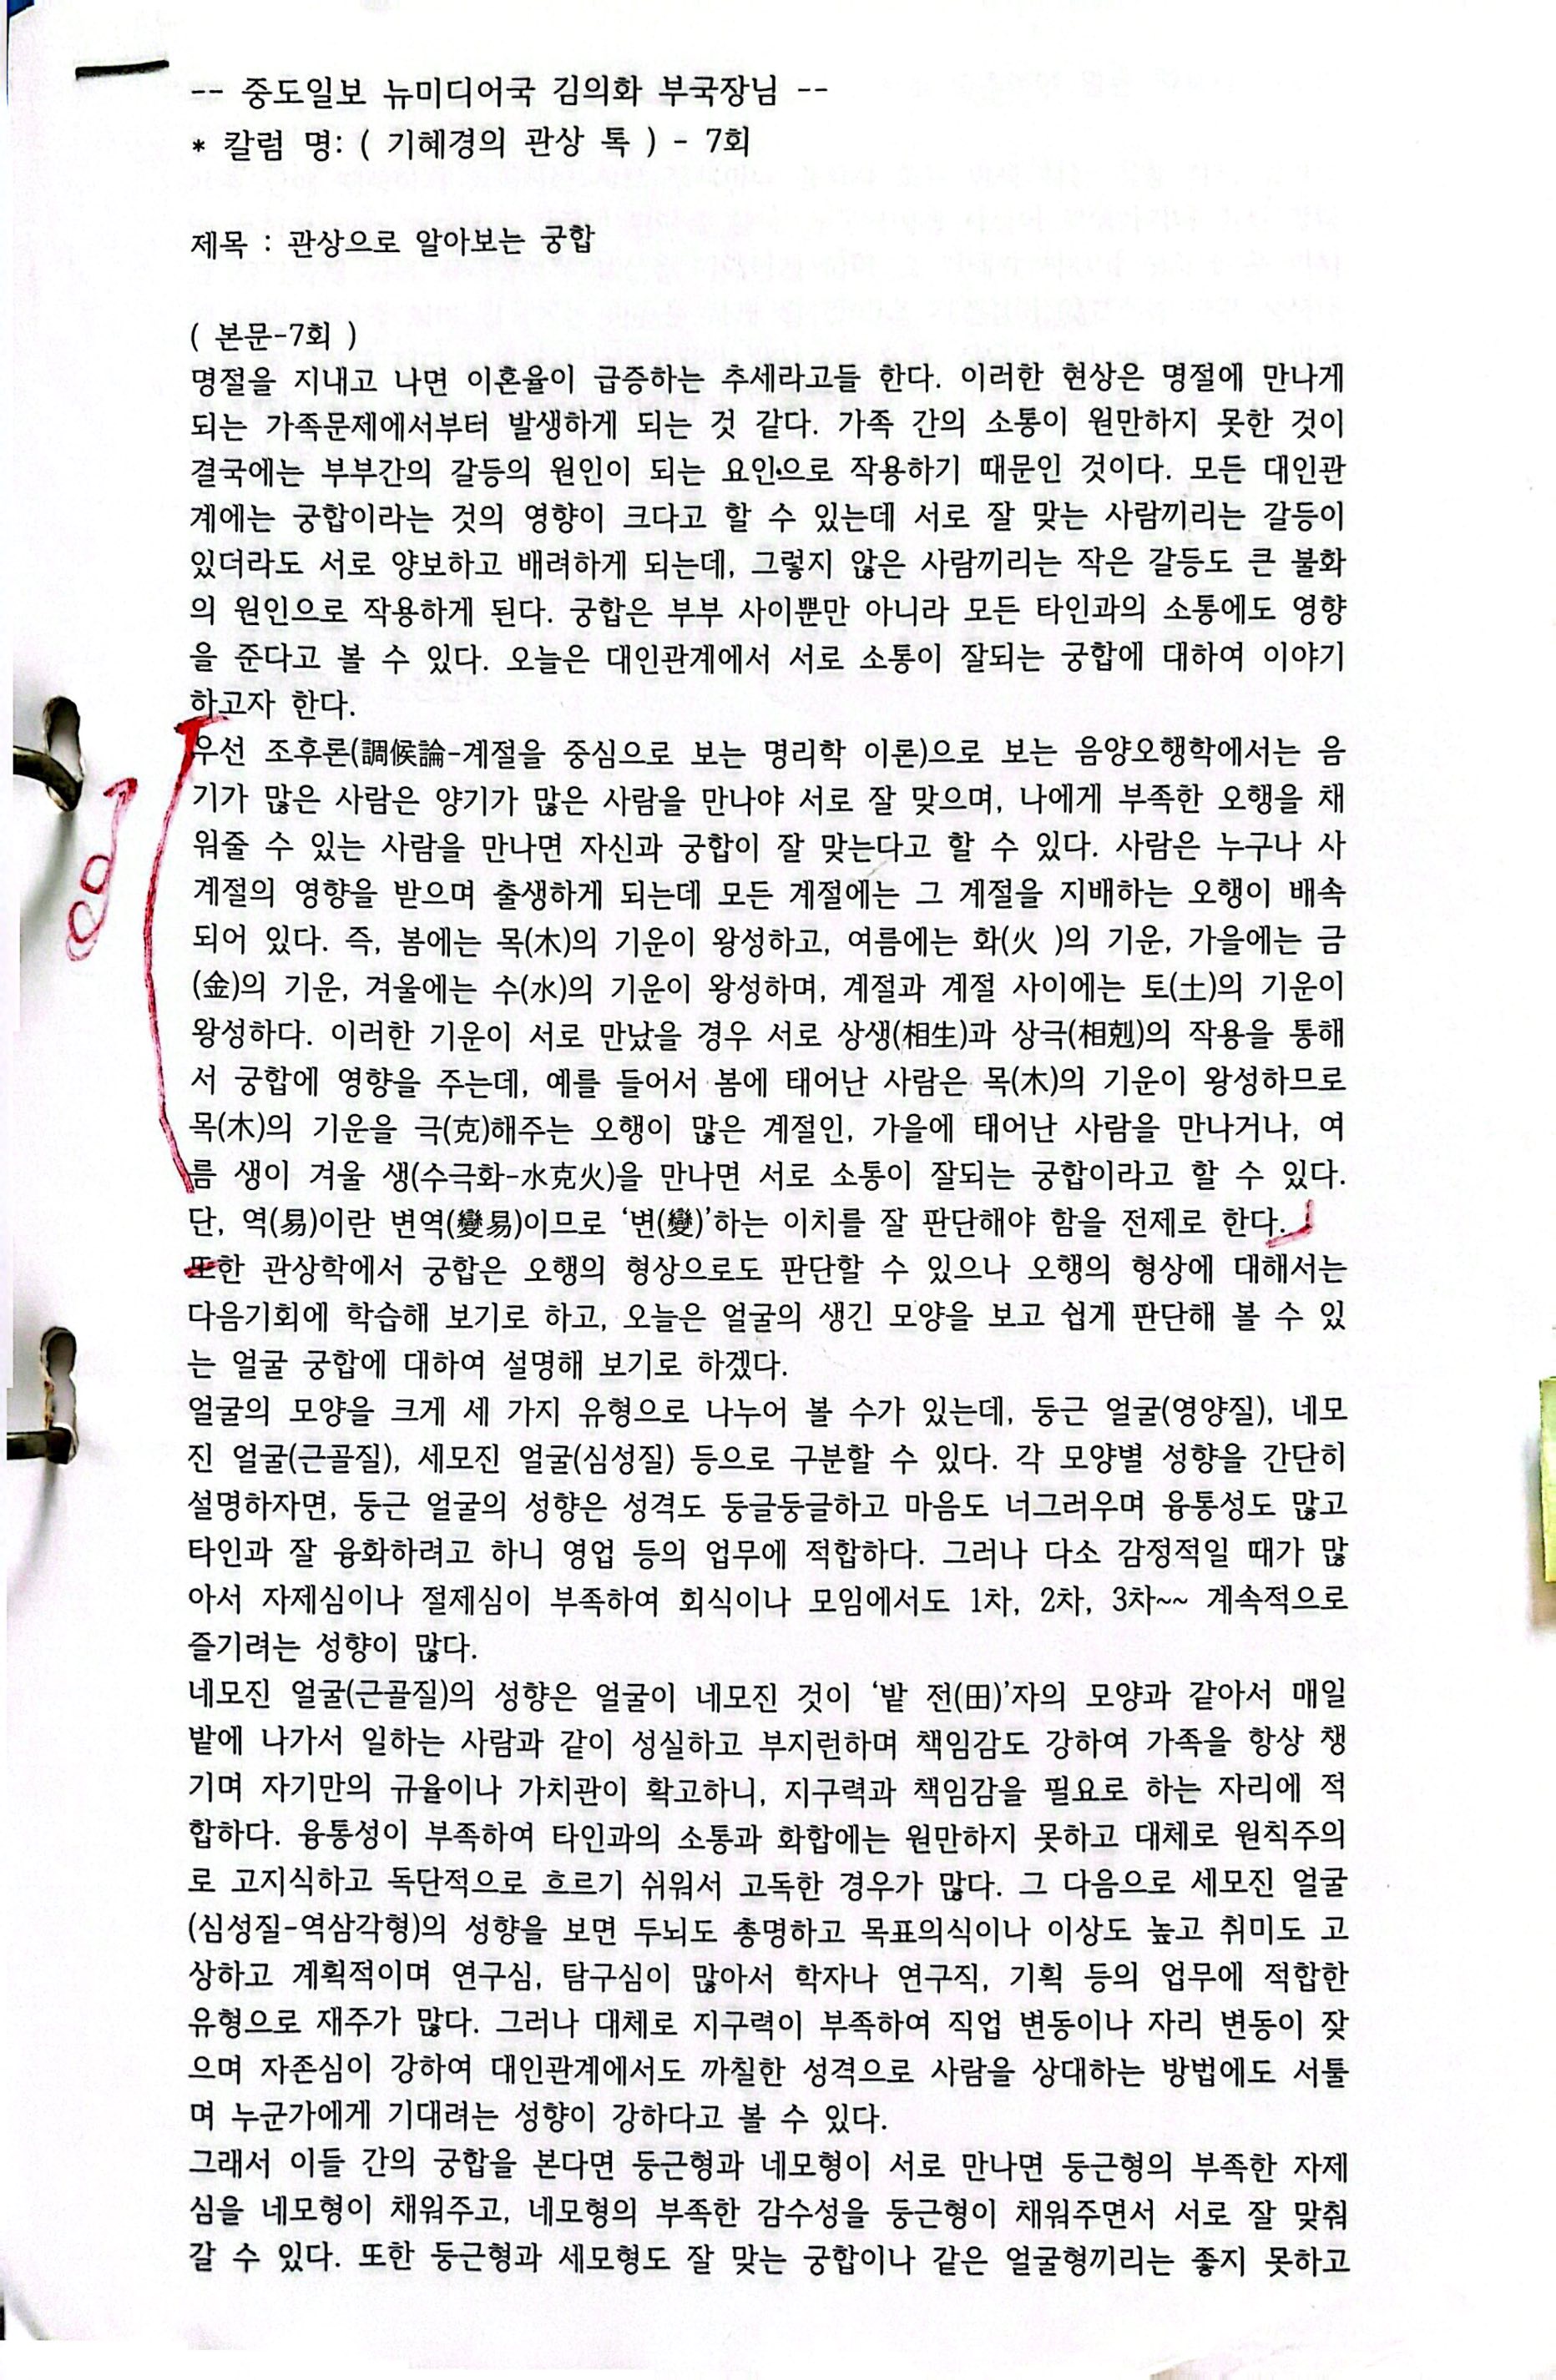 -- 중도일보 뉴미디어국 김의화 부국장님 --
* 칼럼 명: ( 기혜경의 관상 톡 ) - 7회
제목 : 관상으로 알아보는 궁합
( 본문-7회 )
명절을 지내고 나면 이혼율이 급증하는 추세라고들 한다. 이러한 현상은 명절에 만나게
되는 가족문제에서부터 발생하게 되는 것 같다. 가족 간의 소통이 원만하지 못한 것이
결국에는 부부간의 갈등의 원인이 되는 요인으로 작용하기 때문인 것이다. 모든 대인관
계에는 궁합이라는 것의 영향이 크다고 할 수 있는데 서로 잘 맞는 사람끼리는 갈등이
있더라도 서로 양보하고 배려하게 되는데, 그렇지 않은 사람끼리는 작은 갈등도 큰 불화
의 원인으로 작용하게 된다. 궁합은 부부 사이뿐만 아니라 모든 타인과의 소통에도 영향
을 준다고 볼 수 있다. 오늘은 대인관계에서 서로 소통이 잘되는 궁합에 대하여 이야기
하고자 한다.
우선 조후론(調候論-계절을 중심으로 보는 명리학 이론)으로 보는 음양오행학에서는 음
기가 많은 사람은 양기가 많은 사람을 만나야 서로 잘 맞으며, 나에게 부족한 오행을 채
워줄 수 있는 사람을 만나면 자신과 궁합이 잘 맞는다고 할 수 있다. 사람은 누구나 사
계절의 영향을 받으며 출생하게 되는데 모든 계절에는 그 계절을 지배하는 오행이 배속
되어 있다. 즉, 봄에는 목(木)의 기운이 왕성하고, 여름에는 화(火 )의 기운, 가을에는 금
(金)의 기운, 겨울에는 수(水)의 기운이 왕성하며, 계절과 계절 사이에는 토(土)의 기운이
왕성하다. 이러한 기운이 서로 만났을 경우 서로 상생(相生)과 상극(相剋)의 작용을 통해
서 궁합에 영향을 주는데, 예를 들어서 봄에 태어난 사람은 목(木)의 기운이 왕성하므로
목(木)의 기운을 극(克)해주는 오행이 많은 계절인, 가을에 태어난 사람을 만나거나, 여
름 생이 겨울 생(수극화-水克火)을 만나면 서로 소통이 잘되는 궁합이라고 할 수 있다.
단, 역(易)이란 변역(變易)이므로 ‘변(變)’하는 이치를 잘 판단해야 함을 전제로 한다.
또한 관상학에서 궁합은 오행의 형상으로도 판단할 수 있으나 오행의 형상에 대해서는
다음기회에 학습해 보기로 하고, 오늘은 얼굴의 생긴 모양을 보고 쉽게 판단해 볼 수 있
는 얼굴 궁합에 대하여 설명해 보기로 하겠다.
얼굴의 모양을 크게 세 가지 유형으로 나누어 볼 수가 있는데, 둥근 얼굴(영양질), 네모
진 얼굴(근골질), 세모진 얼굴(심성질) 등으로 구분할 수 있다. 각 모양별 성향을 간단히
설명하자면, 둥근 얼굴의 성향은 성격도 둥글둥글하고 마음도 너그러우며 융통성도 많고
타인과 잘 융화하려고 하니 영업 등의 업무에 적합하다. 그러나 다소 감정적일 때가 많
아서 자제심이나 절제심이 부족하여 회식이나 모임에서도 1차, 2차, 3차~~ 계속적으로
즐기려는 성향이 많다.
네모진 얼굴(근골질)의 성향은 얼굴이 네모진 것이 ‘밭 전(田)’자의 모양과 같아서 매일
밭에 나가서 일하는 사람과 같이 성실하고 부지런하며 책임감도 강하여 가족을 항상 챙
기며 자기만의 규율이나 가치관이 확고하니, 지구력과 책임감을 필요로 하는 자리에 적
합하다. 융통성이 부족하여 타인과의 소통과 화합에는 원만하지 못하고 대체로 원칙주의
로 고지식하고 독단적으로 흐르기 쉬워서 고독한 경우가 많다. 그 다음으로 세모진 얼굴
(심성질-역삼각형)의 성향을 보면 두뇌도 총명하고 목표의식이나 이상도 높고 취미도 고
상하고 계획적이며 연구심, 탐구심이 많아서 학자나 연구직, 기획 등의 업무에 적합한
유형으로 재주가 많다. 그러나 대체로 지구력이 부족하여 직업 변동이나 자리 변동이 잦
으며 자존심이 강하여 대인관계에서도 까칠한 성격으로 사람을 상대하는 방법에도 서툴
며 누군가에게 기대려는 성향이 강하다고 볼 수 있다.
그래서 이들 간의 궁합을 본다면 둥근형과 네모형이 서로 만나면 둥근형의 부족한 자제
심을 네모형이 채워주고, 네모형의 부족한 감수성을 둥근형이 채워주면서 서로 잘 맞춰
갈 수 있다. 또한 둥근형과 세모형도 잘 맞는 궁합이나 같은 얼굴형끼리는 좋지 못하고